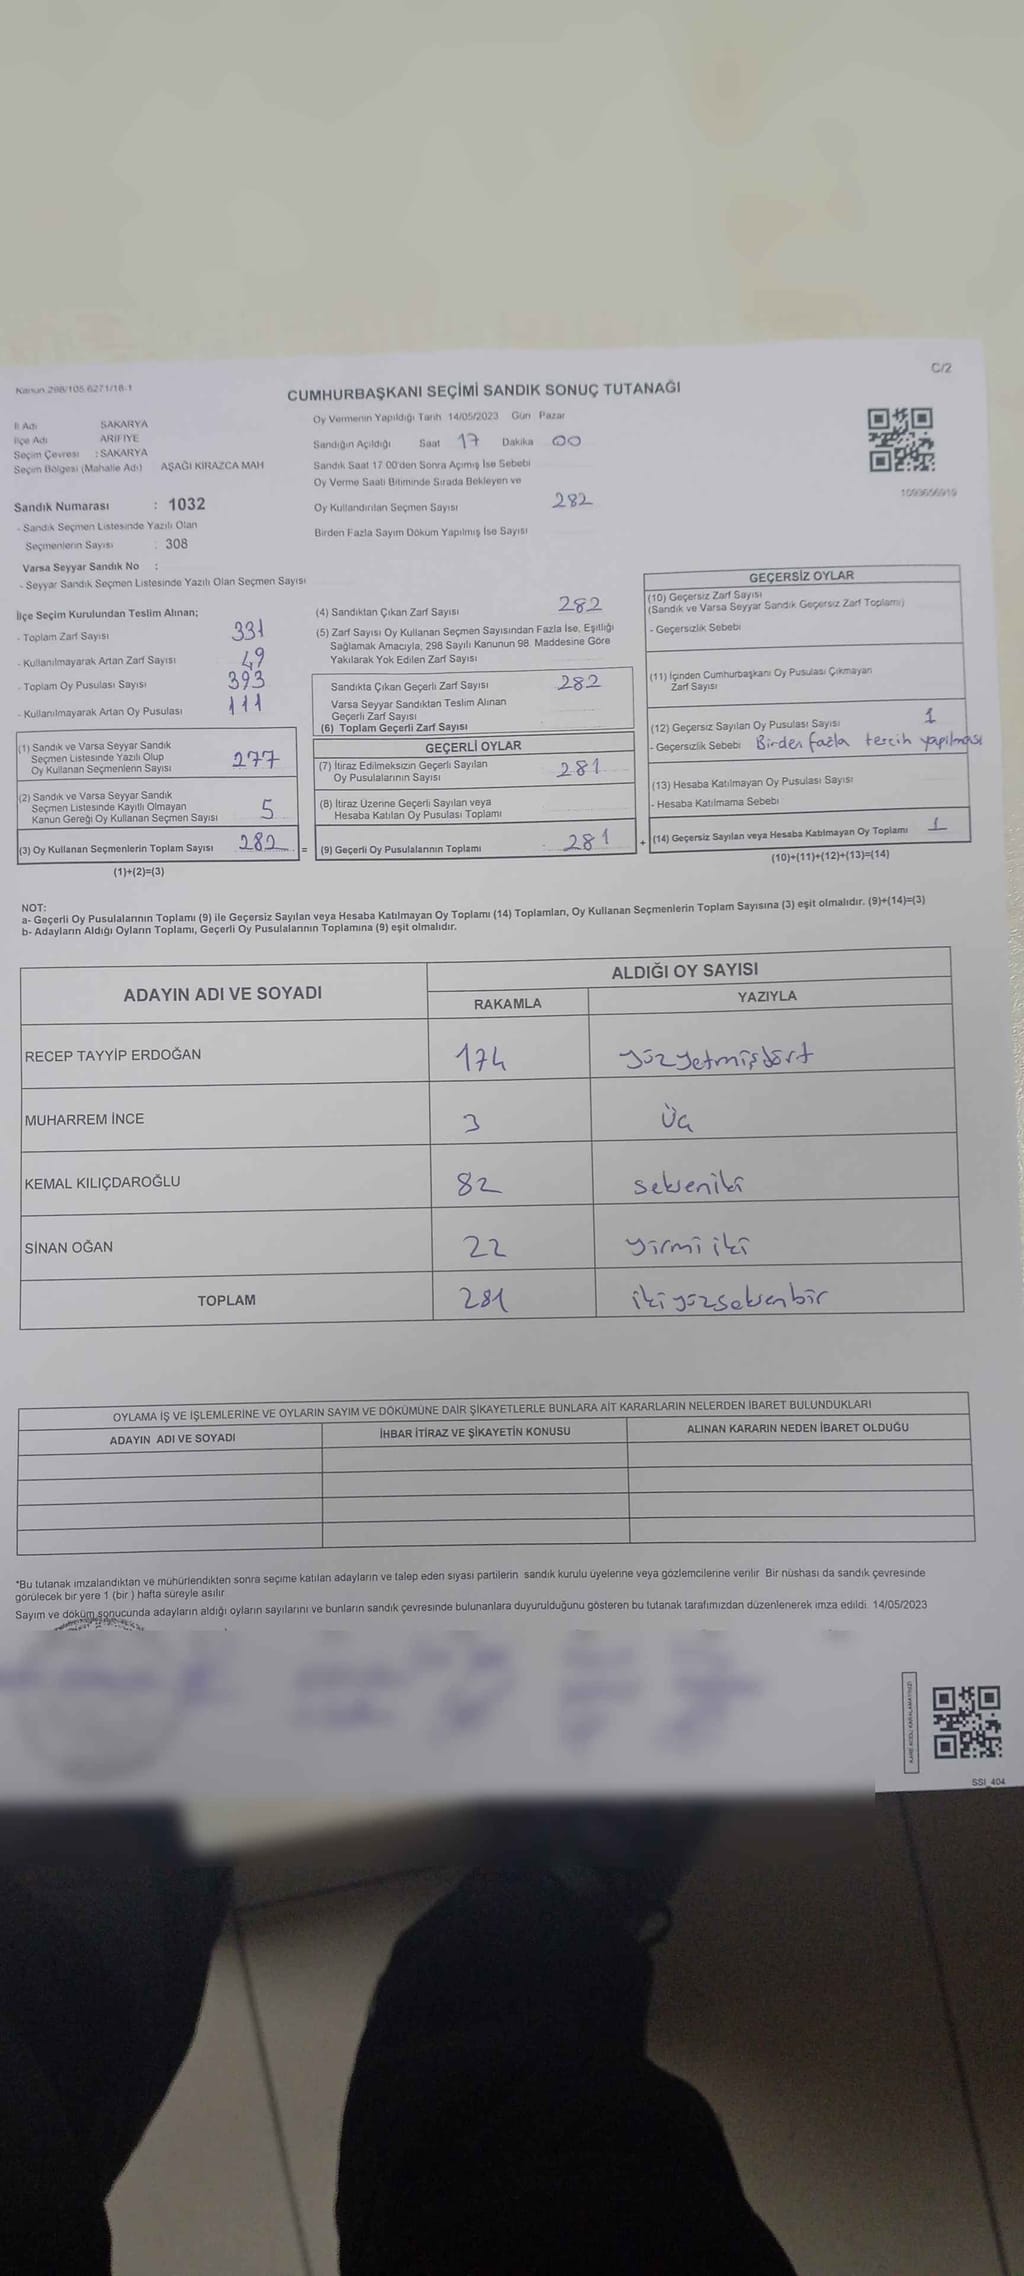 Kanun 298/105.6271/18-1
C/2
CUMHURBAŞKANI SEÇİMİ SANDIK SONUÇ TUTANAĞI
İl Adı SAKARYA
İlçe Adı ARİFİYE
Seçim Çevresi : SAKARYA
Seçim Bölgesi (Mahalle Adı) AŞAĞI KİRAZCA MAH
Sandık Numarası : 1032
- Sandık Seçmen Listesinde Yazılı Olan
Seçmenlerin Sayısı : 308
Varsa Seyyar Sandık No :
- Seyyar Sandık Seçmen Listesinde Yazılı Olan Seçmen Sayısı
Oy Vermenin Yapıldığı Tarih 14/05/2023 Gün Pazar
Sandığın Açıldığı Saat 17 Dakika 00
Sandık Saat 17 00'den Sonra Açımış İse Sebebi
Oy Verme Saati Bitiminde Sırada Bekleyen ve
Oy Kullandırılan Seçmen Sayısı 282
Birden Fazla Sayım Döküm Yapılmış İse Sayısı
1093656919
İlçe Seçim Kurulundan Teslim Alınan;
- Toplam Zarf Sayısı 331
- Kullanılmayarak Artan Zarf Sayısı 49
- Toplam Oy Pusulası Sayısı 393
- Kullanılmayarak Artan Oy Pusulası 111
(1) Sandık ve Varsa Seyyar Sandık
Seçmen Listesinde Yazılı Olup
Oy Kullanan Seçmenlerin Sayısı 277
(2) Sandık ve Varsa Seyyar Sandık
Seçmen Listesinde Kayıtlı Olmayan
Kanun Gereği Oy Kullanan Seçmen Sayısı 5
(3) Oy Kullanan Seçmenlerin Toplam Sayısı 282 =
(1)+(2)=(3)
(4) Sandıktan Çıkan Zarf Sayısı 282
(5) Zarf Sayısı Oy Kullanan Seçmen Sayısından Fazla İse, Eşitliği
Sağlamak Amacıyla, 298 Sayılı Kanunun 98. Maddesine Göre
Yakılarak Yok Edilen Zarf Sayısı
Sandıkta Çıkan Geçerli Zarf Sayısı 282
Varsa Seyyar Sandıktan Teslim Alınan
Geçerli Zarf Sayısı
(6) Toplam Geçerli Zarf Sayısı
GEÇERLİ OYLAR
(7) İtiraz Edilmeksizin Geçerli Sayılan
Oy Pusulalarının Sayısı 281
(8) İtiraz Üzerine Geçerli Sayılan veya
Hesaba Katılan Oy Pusulası Toplamı
(9) Geçerli Oy Pusulalarının Toplamı : 281 +
GEÇERSİZ OYLAR
(10) Geçersiz Zarf Sayısı
(Sandık ve Varsa Seyyar Sandık Geçersiz Zarf Toplamı)
- Geçersizlik Sebebi
(11) İçinden Cumhurbaşkanı Oy Pusulası Çıkmayan
Zarf Sayısı
(12) Geçersiz Sayılan Oy Pusulası Sayısı 1
- Geçersizlik Sebebi Birden fazla tercih yapılması
(13) Hesaba Katılmayan Oy Pusulası Sayısı
- Hesaba Katılmama Sebebi
(14) Geçersiz Sayılan veya Hesaba Katılmayan Oy Toplamı 1
(10)+(11)+(12)+(13)=(14)
NOT:
a- Geçerli Oy Pusulalarının Toplamı (9) ile Geçersiz Sayılan veya Hesaba Katılmayan Oy Toplamı (14) Toplamları, Oy Kullanan Seçmenlerin Toplam Sayısına (3) eşit olmalıdır. (9)+(14)=(3)
b- Adayların Aldığı Oyların Toplamı, Geçerli Oy Pusulalarının Toplamına (9) eşit olmalıdır.
ADAYIN ADI VE SOYADI ALDIĞI OY SAYISI
RAKAMLA YAZIYLA
RECEP TAYYİP ERDOĞAN 174 yüzyetmişdört
MUHARREM İNCE 3 Üç
KEMAL KILIÇDAROĞLU 82 sekseniki
SİNAN OĞAN 22 yirmi iki
TOPLAM 281 ikiyüzseksenbir
OYLAMA İŞ VE İŞLEMLERİNE VE OYLARIN SAYIM VE DÖKÜMÜNE DAİR ŞİKAYETLERLE BUNLARA AİT KARARLARIN NELERDEN İBARET BULUNDUKLARI
ADAYIN ADI VE SOYADI İHBAR İTİRAZ VE ŞİKAYETİN KONUSU ALINAN KARARIN NEDEN İBARET OLDUĞU
*Bu tutanak imzalandıktan ve mühürlendikten sonra seçime katılan adayların ve talep eden siyasi partilerin sandık kurulu üyelerine veya gözlemcilerine verilir Bir nüshası da sandık çevresinde
görülecek bir yere 1 (bir ) hafta süreyle asılır
Sayım ve döküm sonucunda adayların aldığı oyların sayılarını ve bunların sandık çevresinde bulunanlara duyurulduğunu gösteren bu tutanak tarafımızdan düzenlenerek imza edildi. 14/05/2023
KARE KODU KARALAMAYINIZ!
SSI_404